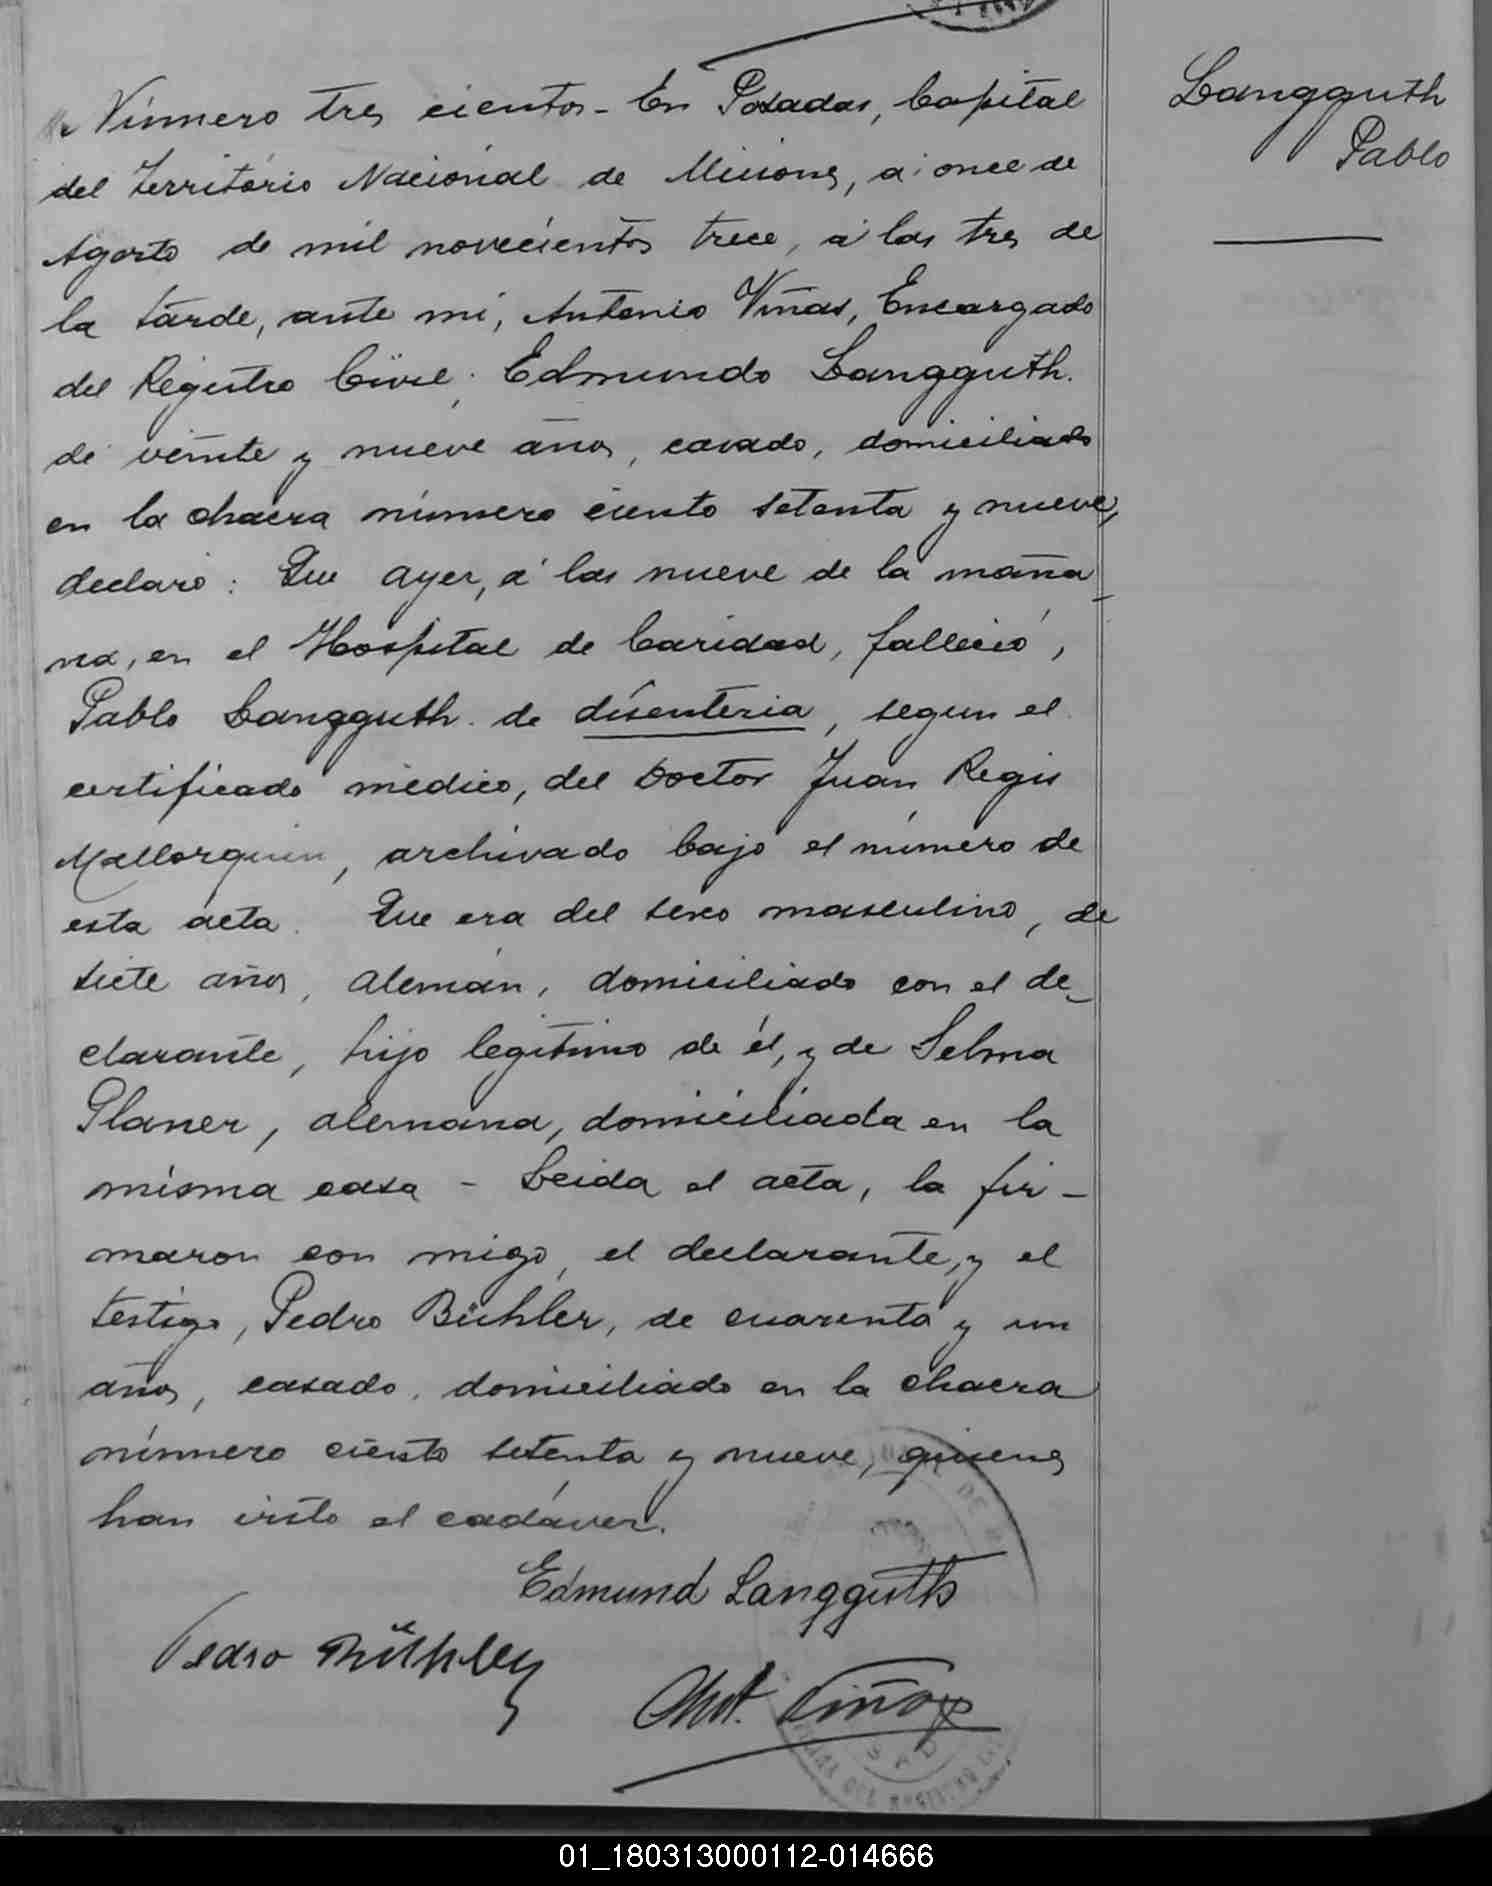 Langguth
Pablo
Número tres cientos - En Posadas, Capital
del Territorio Nacional de Misiones, a once de
Agosto de mil novecientos trece, á las tres de
la tarde, ante mi, Antonio Viñas, Encargado
del Registro Civil, Edmundo Langguth.
de veinte y nueve años, casado, domiciliado
en la chacra número ciento setenta y nueve,
declaró: Que ayer, á las nueve de la maña
na, en el Hospital de Caridad, falleció,
Pablo Langguth. de disenteria, segun el
certificado médico, del Doctor Juan Regis
Mallorquin, archivado bajo el número de
esta acta. Que era del sexo masculino, de
siete años, alemán, domiciliado con el de-
clarante, hijo legitimo de él, y de Selma
Planer, alemana, domiciliada en la
misma casa - Leida el acta, la fir-
maron con migo, el declarante, y el
testigo, Pedro Bühler, de cuarenta y un
años, casado, domiciliado en la chacra
número ciento setenta y nueve, quienes
han visto el cadáver.
Edmund Langguth
Pedro Bühler
Ant. Viñas
01_180313000112-014666